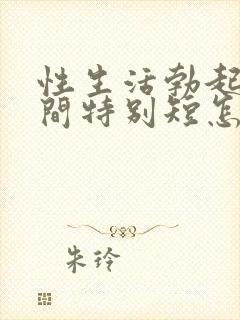 性生活勃起
間特别短怎
朱玲